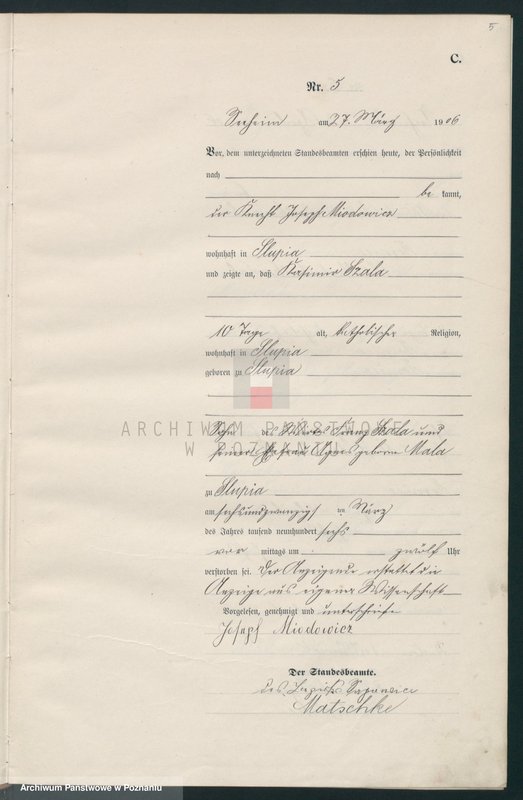 5
C.
Nr. 5
Seeheim am 27. März 1906
Vor dem unterzeichneten Standesbeamten erschien heute, der Persönlichkeit
nach
be kannt,
der Knecht Joseph Miodowicz
wohnhaft in Slupia
und zeigte an, daß Kasimir Szala
10 Tage alt, katholischer Religion,
wohnhaft in Slupia
geboren zu Slupia
ARCHIWUM PAŃSTWOWE
W POZNANIU
Sohn des Wirts Franz Szala und
seiner Ehefrau Agnes geborene Mala
zu Slupia
am sechsundzwanzigsten März
des Jahres tausend neunhundert sechs
vor mittags um zwölf Uhr
verstorben sei. Der Anzeigende erstattet die
Anzeige aus eigener Wissenschaft
Vorgelesen, genehmigt und unterschrieben
Josepf Miodowicz
Der Standesbeamte.
des
Matschke
Archiwum Panstwowe w Poznaniu